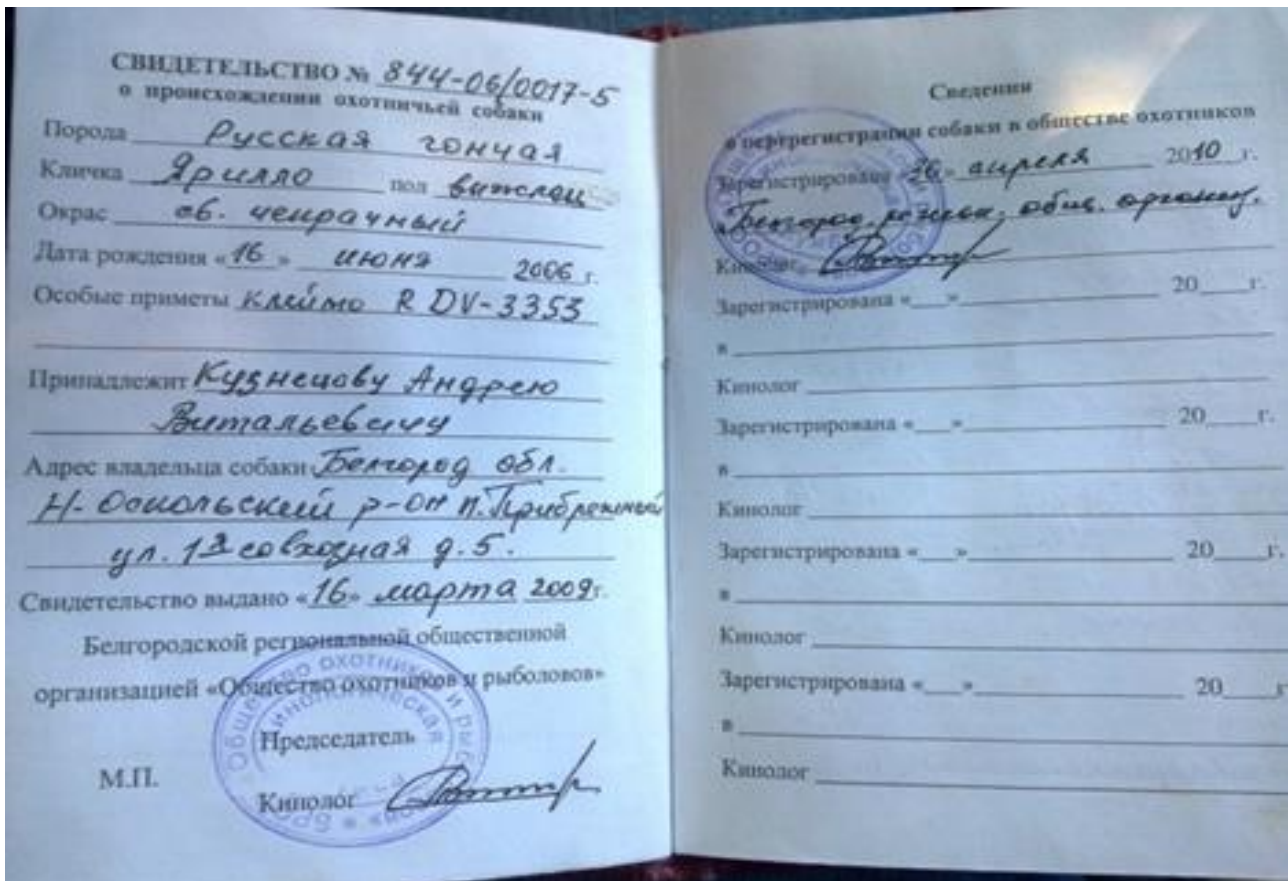 СВИДЕТЕЛЬСТВО № 844-06/0017-5
о происхождении охотничьей собаки
Порода Русская гончая
Кличка Ярилло пол выжлец
Окрас св. чепрачный
Дата рождения «16» июня 2006 г.
Особые приметы клеймо R DV-3353
Принадлежит Кузнецову Андрею
Витальевичу
Адрес владельца собаки Белгород обл.
Н-Оскольский р-он п. Прибрежный
ул. 1я совхозная д. 5.
Свидетельство выдано «16» марта 2009г.
Белгородской региональной общественной
организацией «Общество охотников и рыболовов»
Председатель
М.П.
Кинолог
Сведения
о перерегистрации собаки в обществе охотников
Зарегистрирована «26» апреля 2010 г.
Белгород. регион. общ. организ.
Кинолог
Зарегистрирована «___» 20___г.
в
Кинолог
Зарегистрирована «___» 20___г.
в
Кинолог
Зарегистрирована «___» 20___г.
в
Кинолог
Зарегистрирована «___» 20___г.
в
Кинолог